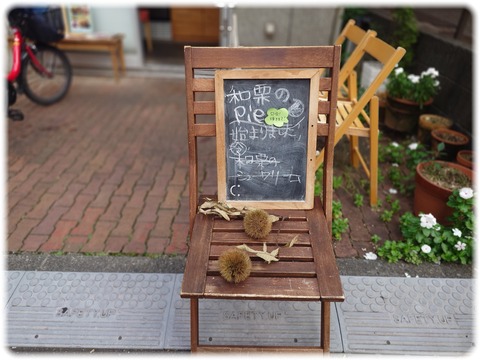 和栗の
Pie
始まりました!
和栗の
シュークリーム
SAFETY UP
SAFETY UP
SAFETY UP